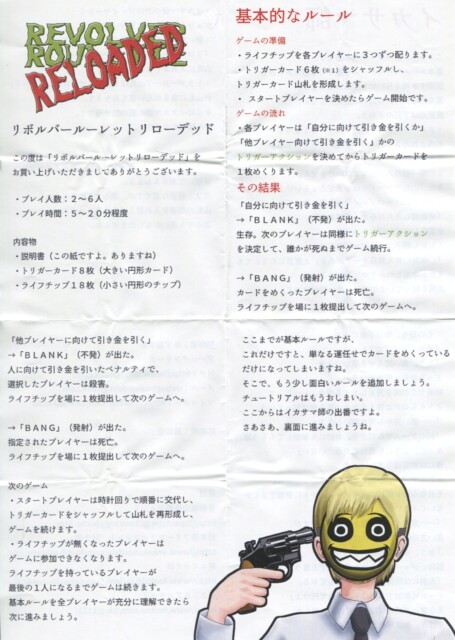 REVOLVER
ROU
RELOADED
リボルバールーレットリローデッド
この度は「リボルバールーレットリローデッド」を
お買い上げいただきましてありがとうございます。
・プレイ人数：２～６人
・プレイ時間：５～２０分程度
内容物
・説明書（この紙ですよ。ありますね）
・トリガーカード８枚（大きい円形カード）
・ライフチップ１８枚（小さい円形のチップ）
基本的なルール
ゲームの準備
・ライフチップを各プレイヤーに３つずつ配ります。
・トリガーカード６枚（※１）をシャッフルし、
トリガーカード山札を形成します。
・ スタートプレイヤーを決めたらゲーム開始です。
ゲームの流れ
・各プレイヤーは「自分に向けて引き金を引くか」
「他プレイヤー向けて引き金を引く」かの
トリガーアクションを決めてからトリガーカードを
１枚めくります。
その結果
「自分に向けて引き金を引く」
→「ＢＬＡＮＫ」（不発）が出た。
生存。次のプレイヤーは同様にトリガーアクション
を決定して、誰かが死ぬまでゲーム続行。
→「ＢＡＮＧ」（発射）が出た。
カードをめくったプレイヤーは死亡。
ライフチップを場に１枚提出して次のゲームへ。
「他プレイヤーに向けて引き金を引く」
→「ＢＬＡＮＫ」（不発）が出た。
人に向けて引き金を引いたペナルティで、
選択したプレイヤーは殺害。
ライフチップを場に１枚提出して次のゲームへ。
→「ＢＡＮＧ」（発射）が出た。
指定されたプレイヤーは死亡。
ライフチップを場に１枚提出して次のゲームへ。
次のゲーム
・スタートプレイヤーは時計回りで順番に交代し、
トリガーカードをシャッフルして山札を再形成し、
ゲームを続けます。
・ライフチップが無くなったプレイヤーは
ゲームに参加できなくなります。
ライフチップを持っているプレイヤーが
最後の１人になるまでゲームは続きます。
基本ルールを全プレイヤーが充分に理解できたら
次に進みましょう。
ここまでが基本ルールですが、
これだけですと、単なる運任せでカードをめくっている
だけになってしまいますね。
そこで、もう少し面白いルールを追加しましょう。
チュートリアルはもうおしまい。
ここからはイカサマ師の出番ですよ。
さあさあ、裏面に進みましょうね。